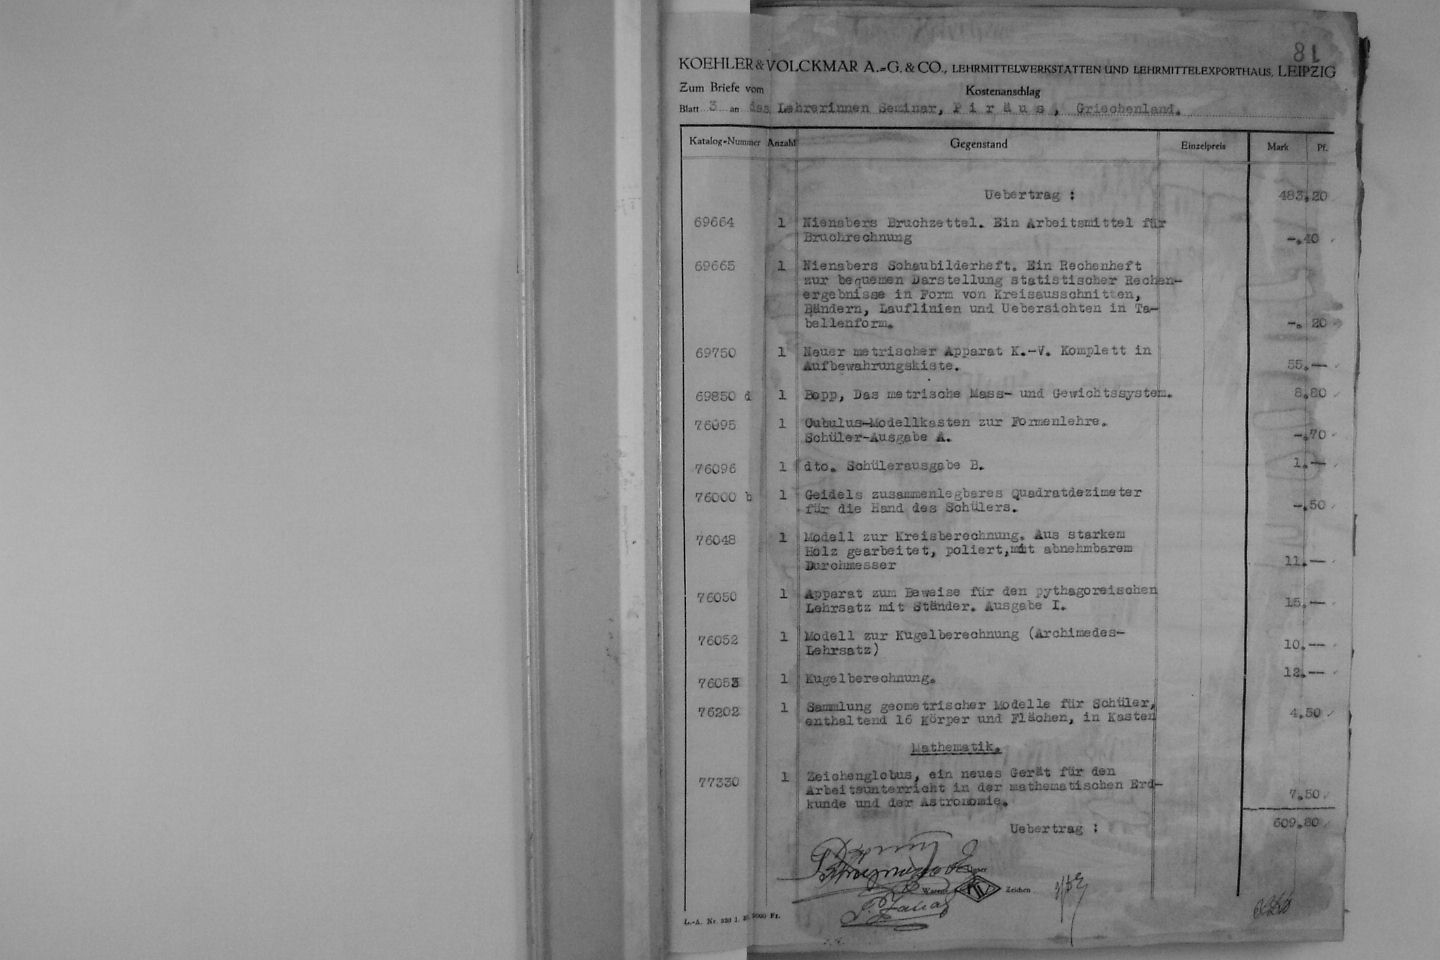 81
KOEHLER & VOLCKMAR A.-G. & CO., LEHRMITTELWERKSTÄTTEN UND LEHRMITTELEXPORTHAUS, LEIPZIG
Zum Briefe vom Kostenanschlag
Blatt 3 an das Lehrerinnen Seminar, P i r ä u s , Griechenland.
Katalog-Nummer Anzahl Gegenstand Einzelpreis Mark Pf.
Uebertrag : 483.20
69664 1 Nienabers Bruchzettel. Ein Arbeitsmittel für
Bruchrechnung -.40
69665 1 Nienabers Schaubilderheft. Ein Rechenheft
zur bequemen Darstellung statistischer Rechen-
ergebnisse in Form von Kreisausschnitten,
Bändern, Lauflinien und Uebersichten in Ta-
bellenform. -. 20
69750 1 Neuer metrischer Apparat K.-V. Komplett in
Aufbewahrungskiste. 55.—
69850 d 1 Bopp, Das metrische Mass- und Gewichtssystem. 8.80
76095 1 Cubulus-Modellkasten zur Formenlehre.
Schüler-Ausgabe A. -.70
76096 1 dto. Schülerausgabe B. 1.—
76000 b 1 Geidels zusammenlegbares Quadratdezimeter
für die Hand des Schülers. -.50
76048 1 Modell zur Kreisberechnung. Aus starkem
Holz gearbeitet, poliert,mit abnehmbarem
Durchmesser 11.—
76050 1 Apparat zum Beweise für den pythagoreischen
Lehrsatz mit Ständer. Ausgabe I. 15.—
76052 1 Modell zur Kugelberechnung (Archimedes-
Lehrsatz) 10.—
76053 1 Kugelberechnung. 12.—
76202 1 Sammlung geometrischer Modelle für Schüler,
enthaltend 16 Körper und Flächen, in Kasten 4.50
Mathematik.
77330 1 Zeichenglobus, ein neues Gerät für den
Arbeitsunterricht in der mathematischen Erd-
kunde und der Astronomie. 7.50
Uebertrag : 609.80
Unser
Waren Zeichen
L.-A. Nr.